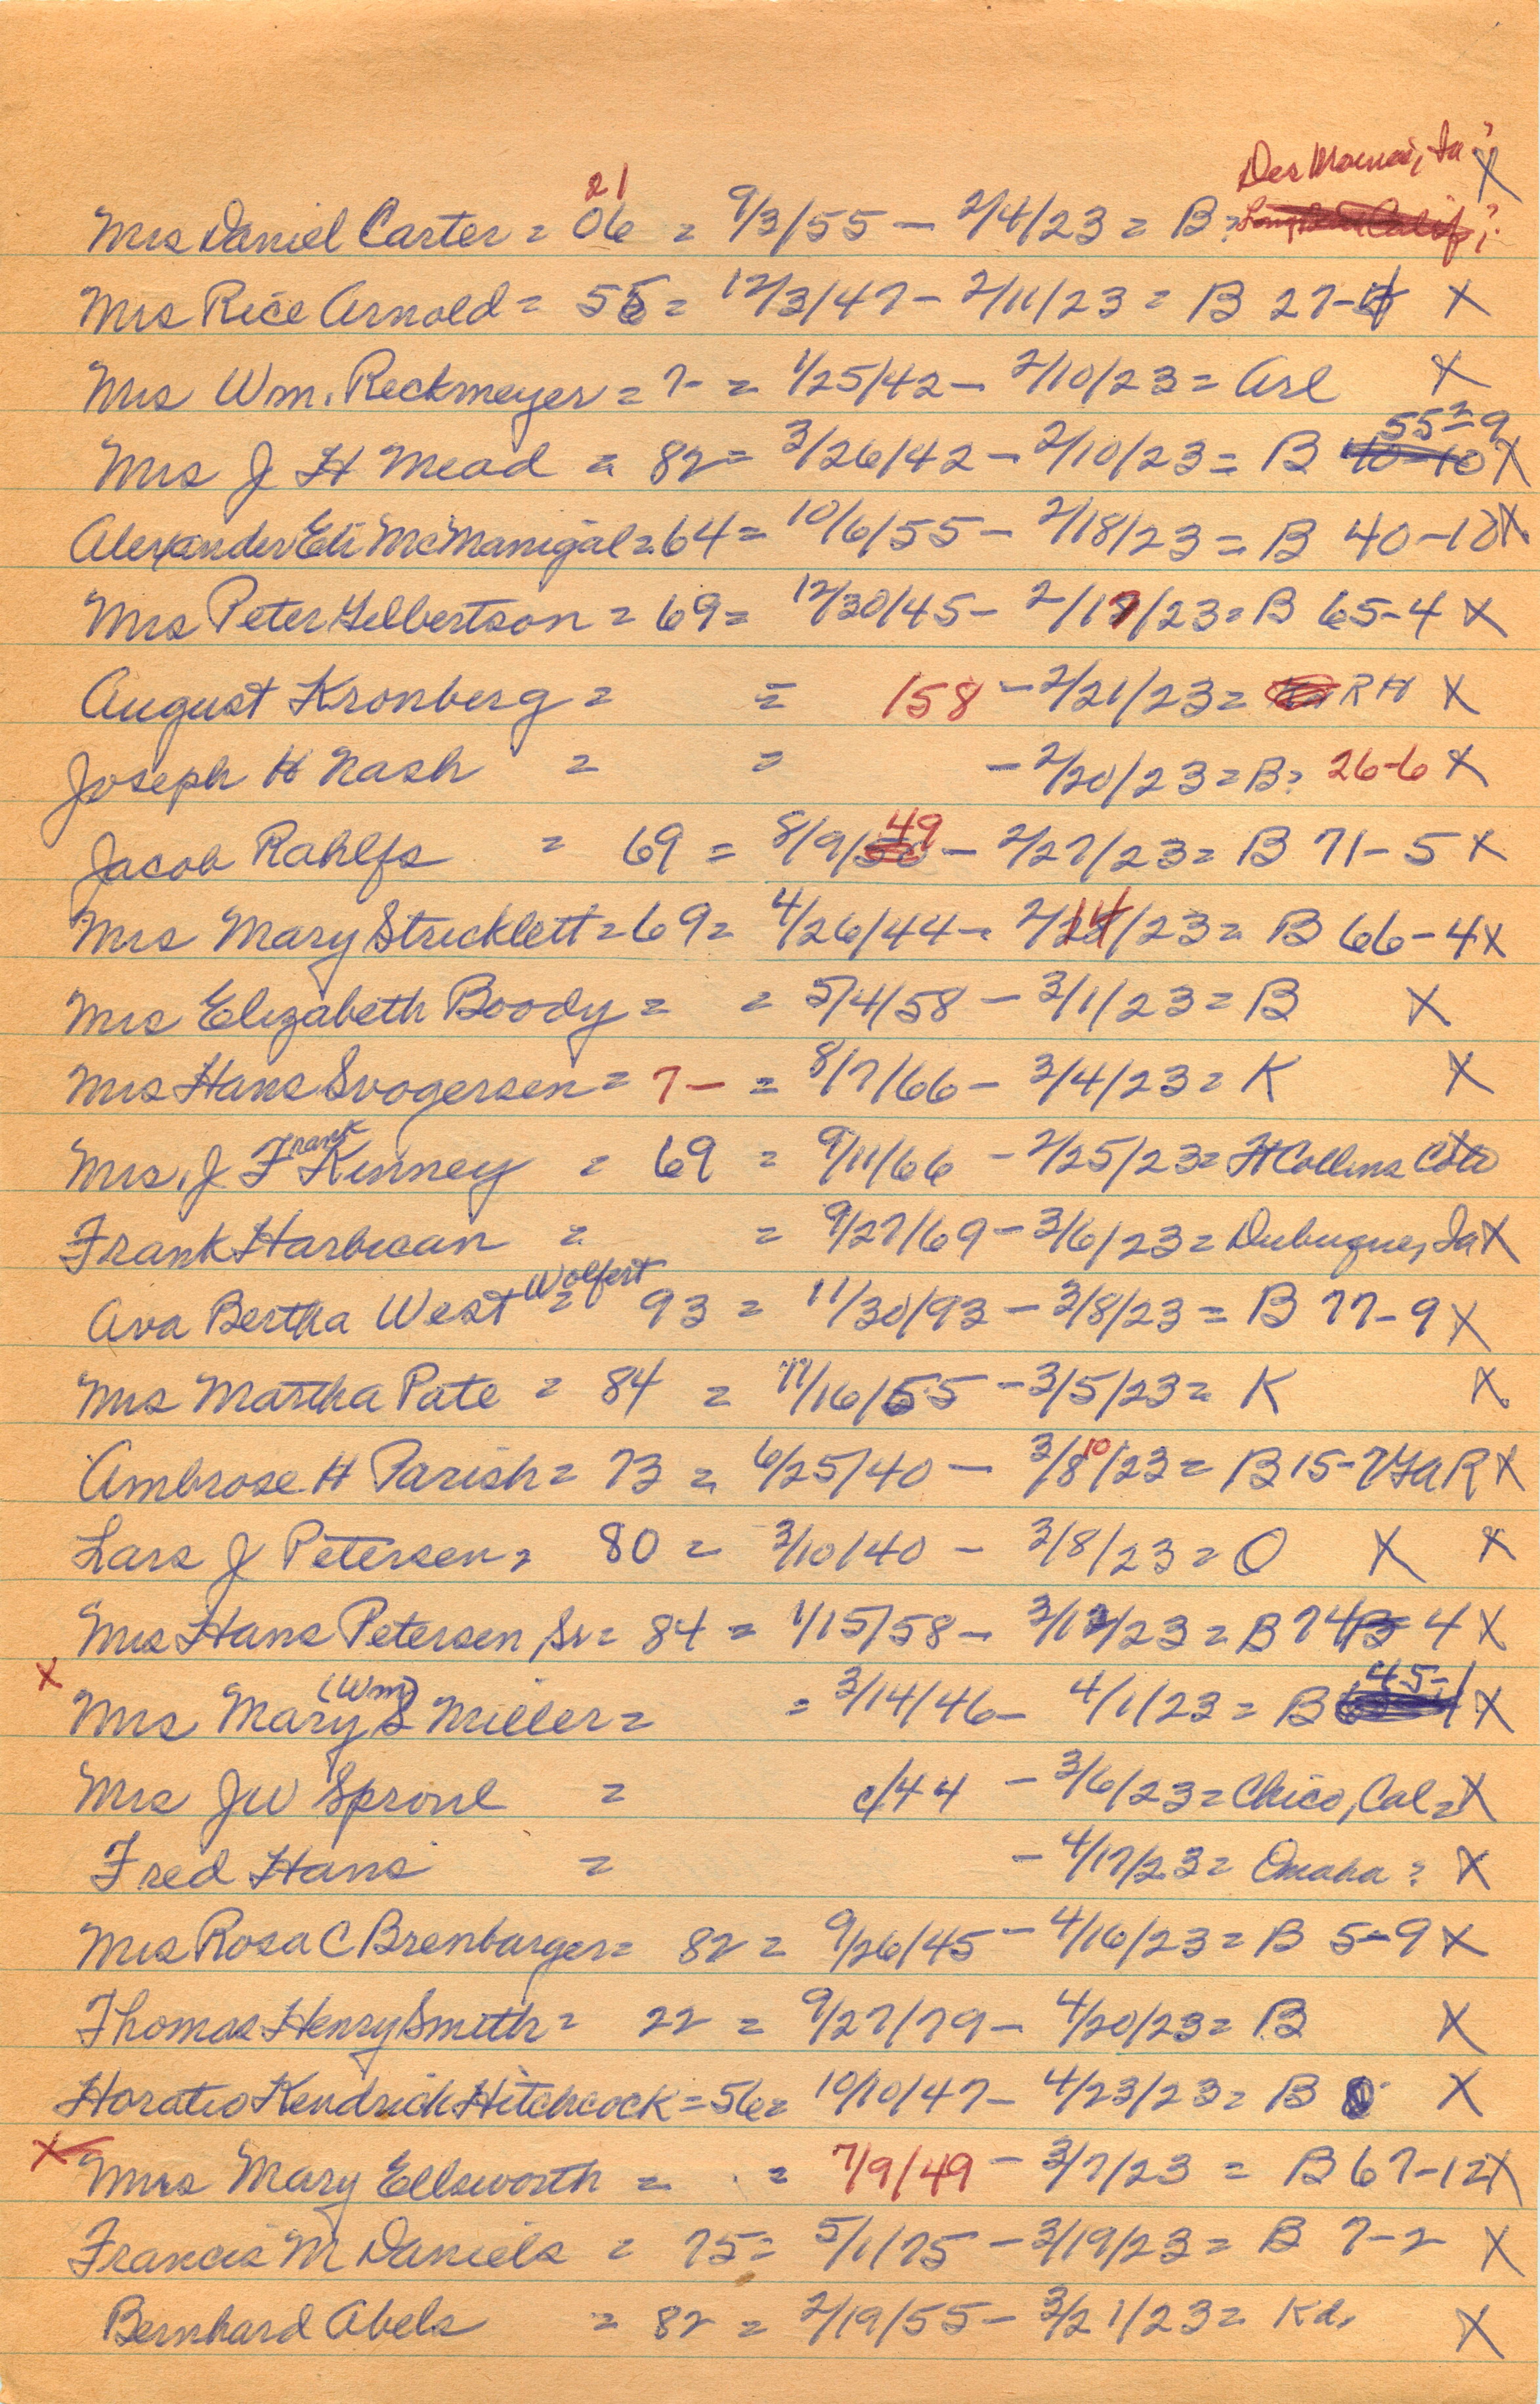 Des Moines, Ia ?
21
Mrs Daniel Carter = 06 = 9/3/55 - 2/4/23 = B ? Calif ? X
Mrs Rice Arnold = 55 = 12/3/47 - 2/11/23 = B 27- X
Mrs Wm. Reckmeyer = ? = 1/25/42 - 2/10/23 = Arl X
55-9
Mrs J H Mead = 82 = 3/26/42 - 2/10/23 = B 40-10 X
Alexander Eli McManigal = 64 = 10/6/55 - 2/18/23 = B 40-10 X
Mrs Peter Gilbertson = 69 = 12/30/45 - 2/17/23 = B 65-4 X
August Kronberg = = 158 - 2/21/23 = RH X
Joseph H Nash = = - 2/20/23 = B = 26-6 X
49
Jacob Rahlfs = 69 = 8/9/50 - 2/27/23 = B 71-5 X
Mrs Mary Stricklett = 69 = 4/26/44 - 2/14/23 = B 66-4 X
Mrs Elizabeth Boody = = 5/4/58 - 3/1/23 = B X
Mrs Hans Svogersen = 7- = 8/7/66 - 3/4/23 = K X
Frank
Mrs. J F Kinney = 69 = 9/11/66 - 2/25/23 = Ft Collins Colo
Frank Harbican = = 9/27/69 - 3/6/23 = Dubuque, Ia X
Wolfert
Ava Bertha West = 93 = 11/30/93 - 3/8/23 = B 77-9 X
Mrs Martha Pate = 84 = 11/16/55 - 3/5/23 = K X
10
Ambrose H Parish = 73 = 6/25/40 - 3/8/23 = B 15-7 GAR X
Lars J Petersen = 80 = 3/10/40 - 3/8/23 = O X X
Mrs Hans Petersen, Sr = 84 = 1/15/58 - 3/13/23 = B 74-4 X
X (Wm) 45-1
Mrs Mary S Miller = = 3/14/46 - 4/1/23 = B X
Mrs JW Sproul = c/44 - 3/6/23 = Chico, Cal = X
Fred Hans = - 4/17/23 = Omaha ? X
Mrs Rosa C Brenbarger = 82 = 9/26/45 - 4/16/23 = B 5-9 X
Thomas Henry Smith = 22 = 9/27/79 - 4/20/23 = B X
Horatio Kendrick Hitchcock = 56 = 10/10/47 - 4/23/23 = B X
X Mrs Mary Ellsworth = = 7/9/49 - 3/7/23 = B 67-12 X
Francis M Daniels = 75 = 5/1/75 - 3/19/23 = B 7-2 X
Bernhard Abels = 82 = 2/19/55 - 3/21/23 = Kd, X